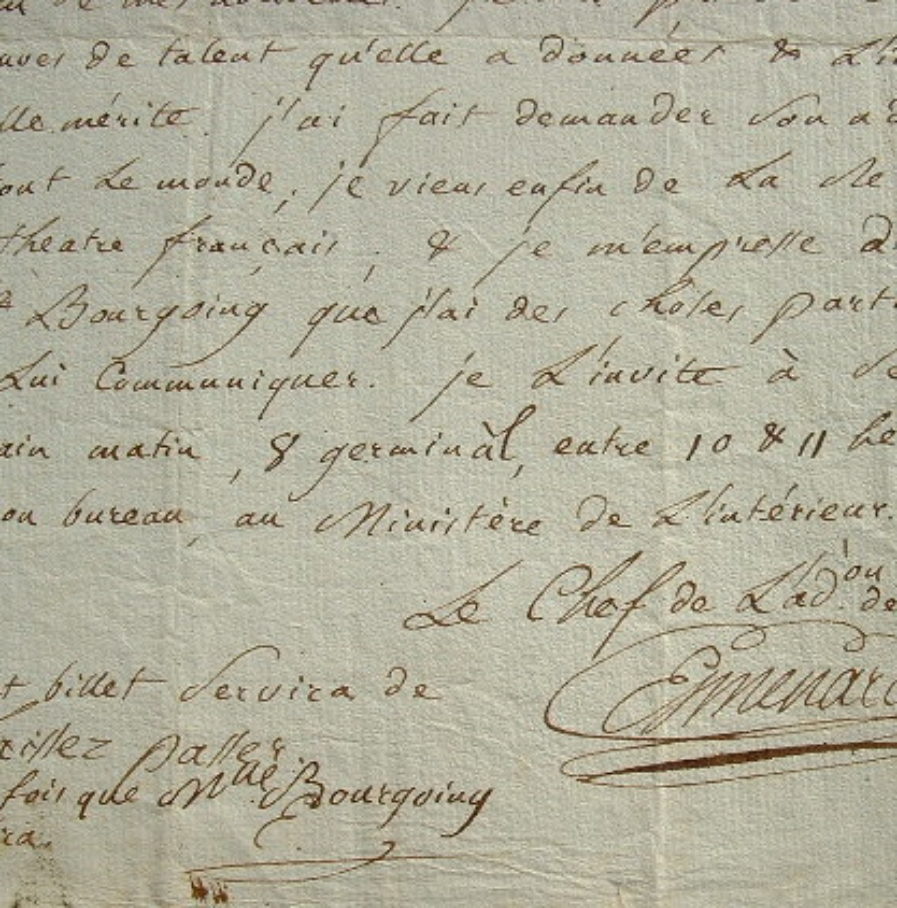 de talent qu'elle a données &
mérite. j'ai fait demander Son
Le monde, je viens enfin de La
theatre français, & je m'empresse
Bourgoing que j'ai des choses
Lui Communiquer. je L'invite à
matin, 8 germinal, entre 10 & 11
bureau, au Ministère de L'intérieur.
Le Chef de L'ad.on de
Esmenard
billet Servira de
passer
fois que Mlle Bourgoing